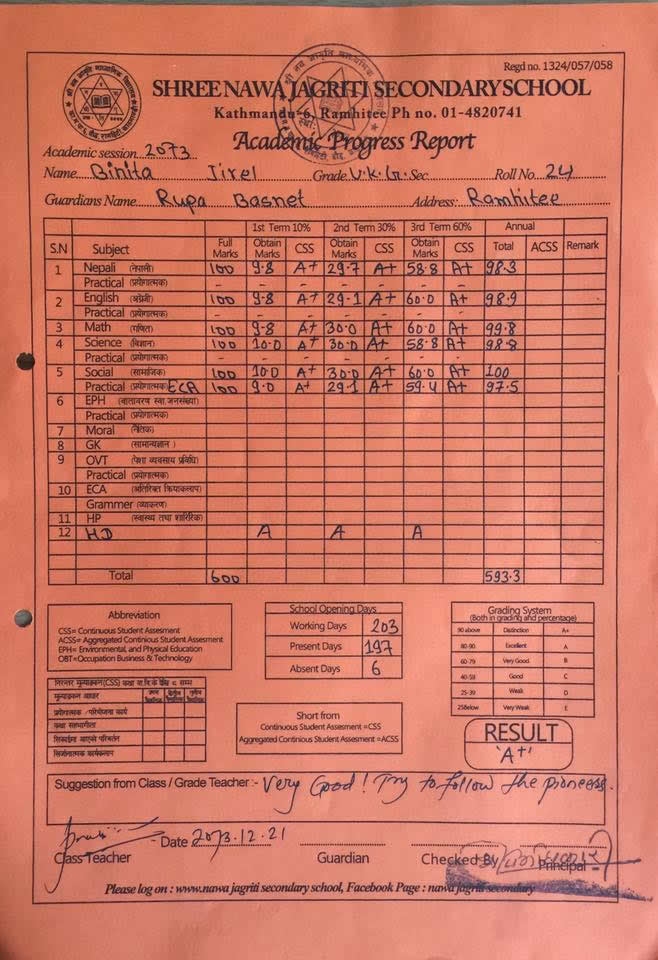 Regd no. 1324/057/058
SHREE NAWA JAGRITI SECONDARY SCHOOL
Kathmandu-6, Ramhitee Ph no. 01-4820741
Academic Progress Report
Academic session 2073
Name Binita Jirel Grade U.K.G. Sec Roll No. 24
Guardians Name Rupa Basnet Address: Ramhitee
1st Term 10% 2nd Term 30% 3rd Term 60% Annual
S.N Subject Full Marks Obtain Marks CSS Obtain Marks CSS Obtain Marks CSS Total ACSS Remark
1 Nepali (नेपाली) 100 9.8 A+ 29.7 A+ 58.8 A+ 98.3
Practical (प्रयोगात्मक) - - - - - - -
2 English (अंग्रेजी) 100 9.8 A+ 29.1 A+ 60.0 A+ 98.9
Practical (प्रयोगात्मक) - - - - - - -
3 Math (गणित) 100 9.8 A+ 30.0 A+ 60.0 A+ 99.8
4 Science (विज्ञान) 100 10.0 A+ 30.0 A+ 58.8 A+ 98.8
Practical (प्रयोगात्मक)
5 Social (सामाजिक) 100 10.0 A+ 30.0 A+ 60.0 A+ 100
Practical (प्रयोगात्मक) ECA 100 9.0 A+ 29.1 A+ 59.4 A+ 97.5
6 EPH (वातावरण स्वा.जनसंख्या)
Practical (प्रयोगात्मक)
7 Moral (नैतिक)
8 GK (सामान्यज्ञान)
9 OVT (पेशा व्यवसाय प्रविधि)
Practical (प्रयोगात्मक)
10 ECA (अतिरिक्त क्रियाकलाप)
Grammer (व्याकरण)
11 HP (स्वास्थ्य तथा शारिरिक)
12 HD A A A
Total 600 593.3
Abbreviation
CSS= Continuous Student Assesment
ACSS= Aggregated Continious Student Assesment
EPH= Environmental, and Physical Education
OBT=Occupation Business & Technology
School Opening Days
Working Days 203
Present Days 197
Absent Days 6
Grading System
(Both in grading and percentage)
90 above Distinction A+
80-90 Excellent A
60-79 Very Good B
40-59 Good C
25-39 Weak D
25Below Very Weak E
मूल्याङ्कन आधार
प्रयोगात्मक / परियोजना कार्य
कक्षा सहभागीता
सिकाईमा आएको परिवर्तन
सिर्जनात्मक कार्यकलाप
Short from
Continuous Student Assesment =CSS
Aggregated Continious Student Assesment =ACSS
RESULT
'A+'
Suggestion from Class / Grade Teacher :- Very Good! Try to follow the pioneers.
Date 2073.12.21
Class Teacher Guardian Checked By Principal
Please log on : www.nawa jagriti secondary school, Facebook Page : nawa jagriti secondary